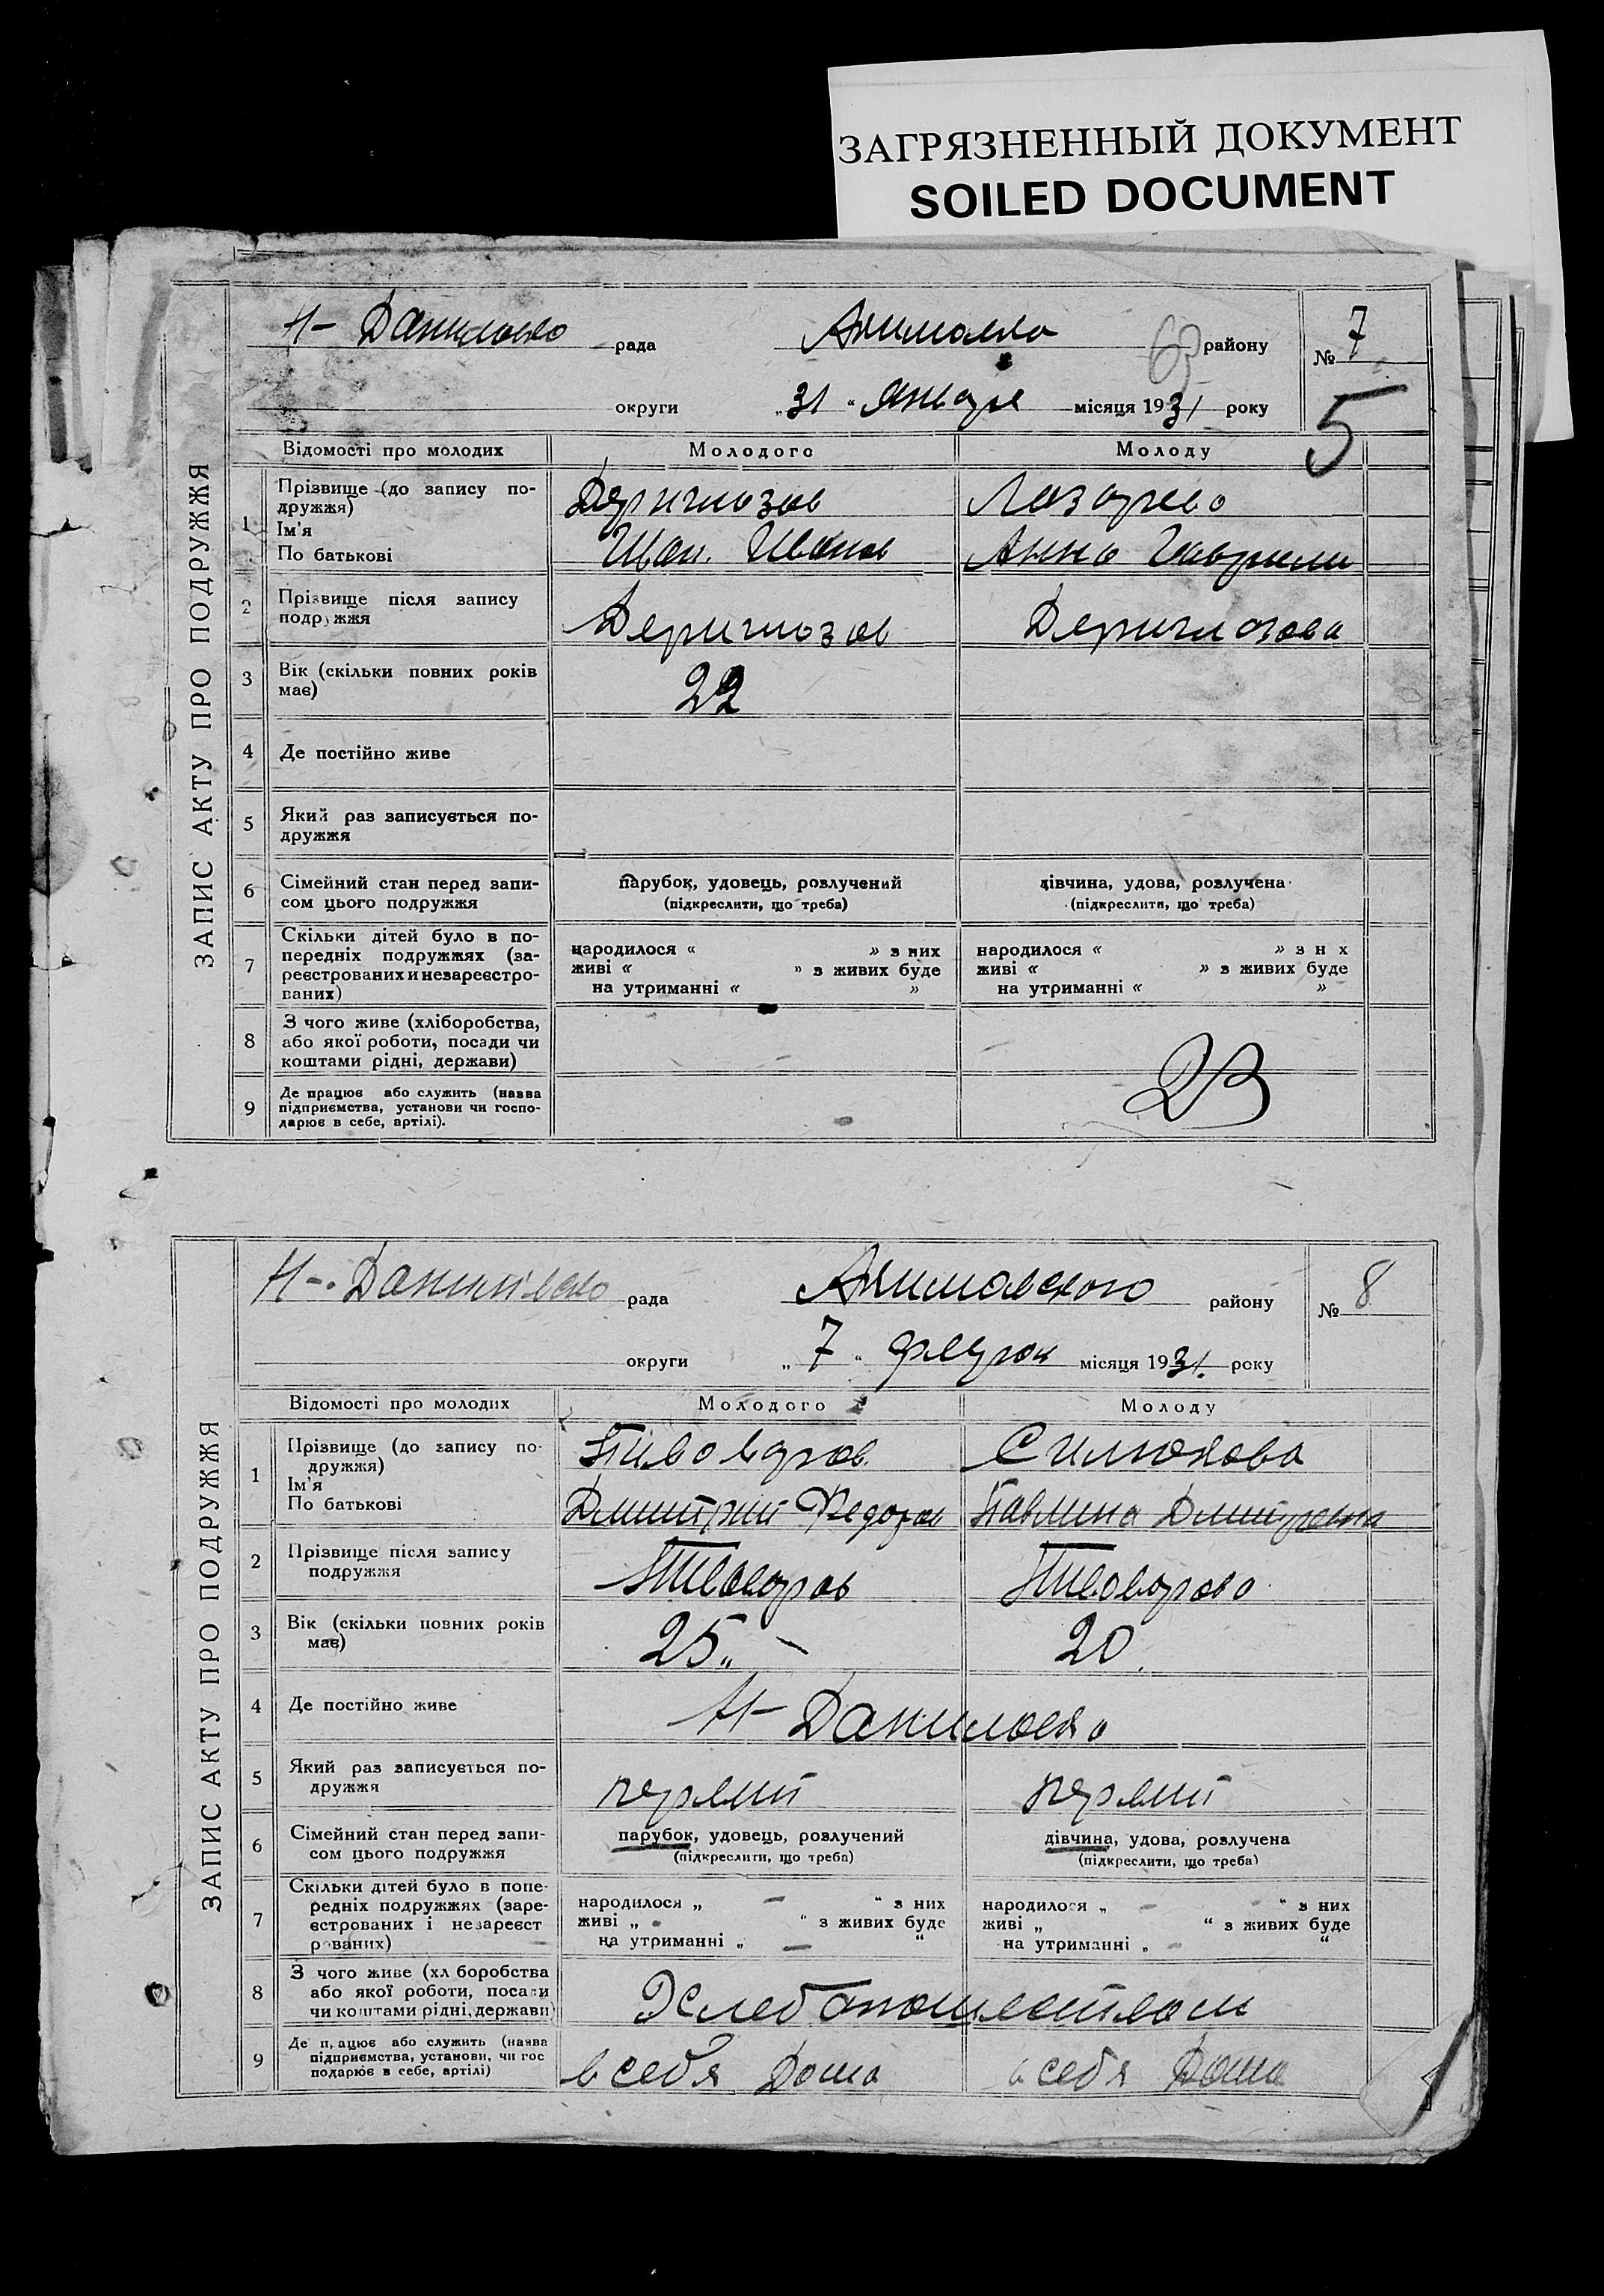 ЗАГРЯЗНЕННЫЙ ДОКУМЕНТ
SOILED DOCUMENT
ЗАПИС АКТУ ПРО ПОДРУЖЖЯ
Н- рада району № 7
округи „31“ Января місяця 1931 року 5
Відомості про молодих Молодого Молоду
1 Прізвище (до запису по-
дружжя)
Ім'я
По батькові
Лазарева
Иван. Иванов Анна Гаврили
2 Прізвище після запису
подружжя
3 Вік (скільки повних років
має)
22
4 Де постійно живе
5 Який раз записується по-
дружжя
6 Сімейний стан перед запи-
сом цього подружжя
парубок, удовець, розлучений
(підкреслити, що треба)
дівчина, удова, розлучена
(підкреслити, що треба)
7 Скільки дітей було в по-
передніх подружжях (за-
реєстрованих и незареєстро-
ваних)
народилося « » з них
живі « » з живих буде
на утриманні « »
народилося « » з н х
живі « » з живих буде
на утриманні « »
8 З чого живе (хліборобства,
або якої роботи, посади чи
коштами рідні, держави)
9 Де працює або служить (назва
підприємства, установи чи госпо-
дарює в себе, артілі).
ЗАПИС АКТУ ПРО ПОДРУЖЖЯ
Н- рада району № 8
округи „7“ місяця 1931. року
Відомості про молодих Молодого Молоду
1 Прізвище (до запису по-
дружжя)
Ім'я
По батькові
Пивоваров Силюкова
Дмитрий Федоров Павлина
2 Прізвище після запису
подружжя
Пивоваров Пивоварова
3 Вік (скільки повних років
має)
25 20
4 Де постійно живе
Н- Даниловка
5 Який раз записується по-
дружжя
первий первий
6 Сімейний стан перед запи-
сом цього подружжя
парубок, удовець, розлучений
(підкреслити, що треба)
дівчина, удова, розлучена
(підкреслити, що треба)
7 Скільки дітей було в попе-
редніх подружжях (заре-
єстрованих і незареєст
рованих)
народилося „ – “ з них
живі „ “ з живих буде
на утриманні „ – “
народилося „ – “ з них
живі „ “ з живих буде
на утриманні „ – “
8 З чого живе (хл боробства
або якої роботи, посади
чи коштами рідні, держави)
Хлебопашеством
9 Де працює або служить (назва
підприємства, установи, чи гос
подарює в себе, артілі)
в себя Дома в себя Дома